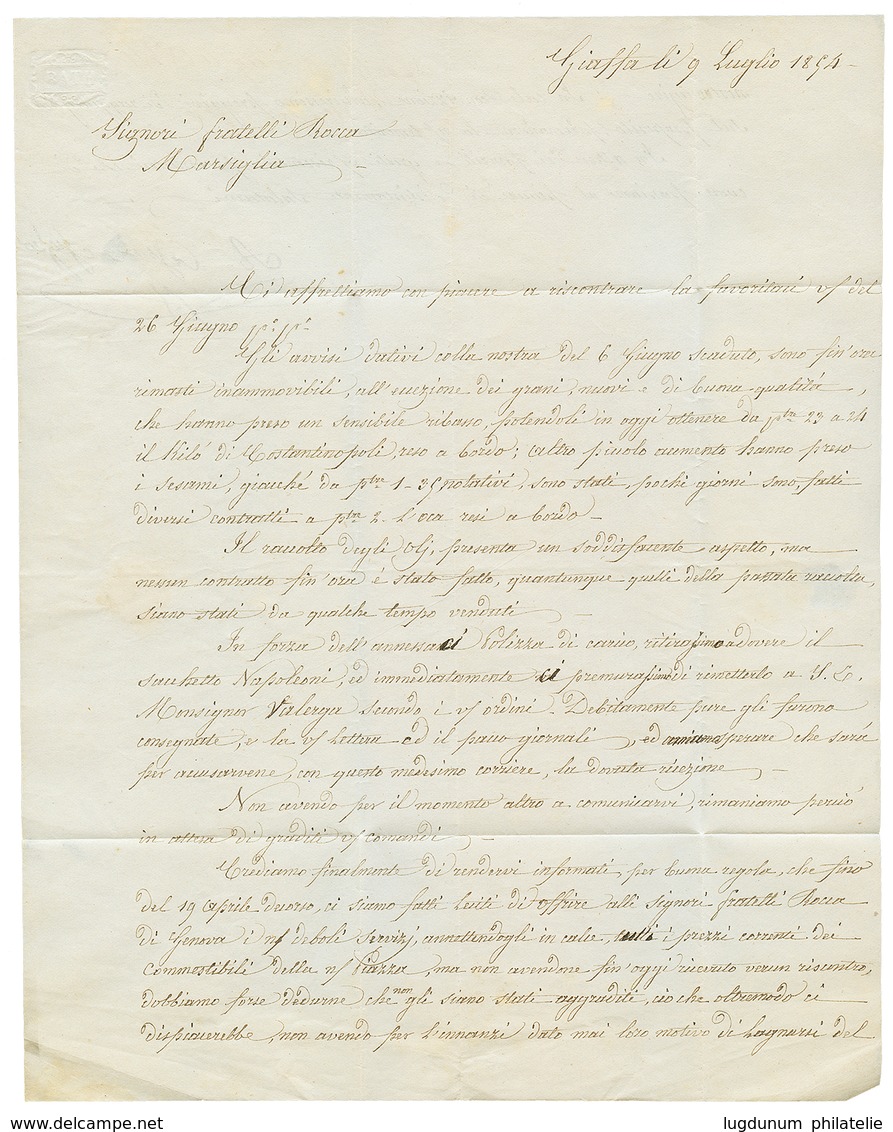 BATH
Giaffa li 9 Luglio 1854
Signori fratelli Rocca
Marsiglia
Ci affrettiamo con piacere a riscontrare la favoritaci v/ del
26 Giugno p.º p.º
Gli avvisi dativi colla nostra del 6 Giugno scaduto, sono fin'ora
rimasti inammovibili, all'eccezione dei grani, nuovi e di buona qualitá,
che hanno preso un sensibile ribasso, potendoli in oggi ottenere da ptre 23 a 24
il Kiló di Costantinopoli, reso a bordo; altro piccolo aumento hanno preso
i sesami, giacché da ptre 1-35 notativi, sono stati, pochi giorni sono, fatti
diversi contratti a ptre 2. l'oca resi a bordo
Il raccolto degli Olj, presenta un soddisfacente aspetto, ma
nessun contratto fin'ora é stato fatto, quantunque quelli della passata raccolta,
siano stati da qualche tempo venduti
In forza dell'annessaci Polizza di carico, ritirassimo a dovere il
sacchetto Napoleoni, ed immediatamente ci premurassimo di rimetterlo a S. E.
Monsignor Valerga secondo i v/ ordini. Debitamente pure gli furono
consegnate, e la v/ lettera ed il pacco giornali, ed amiamo sperare che sará
per accusarvene, con questo medesimo corriere, la dovuta ricezione
Non avendo per il momento altro a comunicarvi, rimaniamo perció
in attesa di graditi v/ comandi
Crediamo finalmente di rendervi informati, per buona regola, che fino
del 19 Aprile decorso, ci siamo fatti lesiti di offrire alli signori fratelli Rocca
di Genova i n/ deboli servizj, annottendogli in calce tutti i prezzi correnti dei
Commostibili della n/ Piazza, ma non avendone fin'oggi ricevuto verun riscontro,
dobbiamo forse dedurne che non gli siano stati aggraditi, ció che oltremodo ci
dispiacerebbe, non avendo per l'innanzi dato mai loro motivo di lagnarsi del
www.delcampe.net
lugdunum philatelie